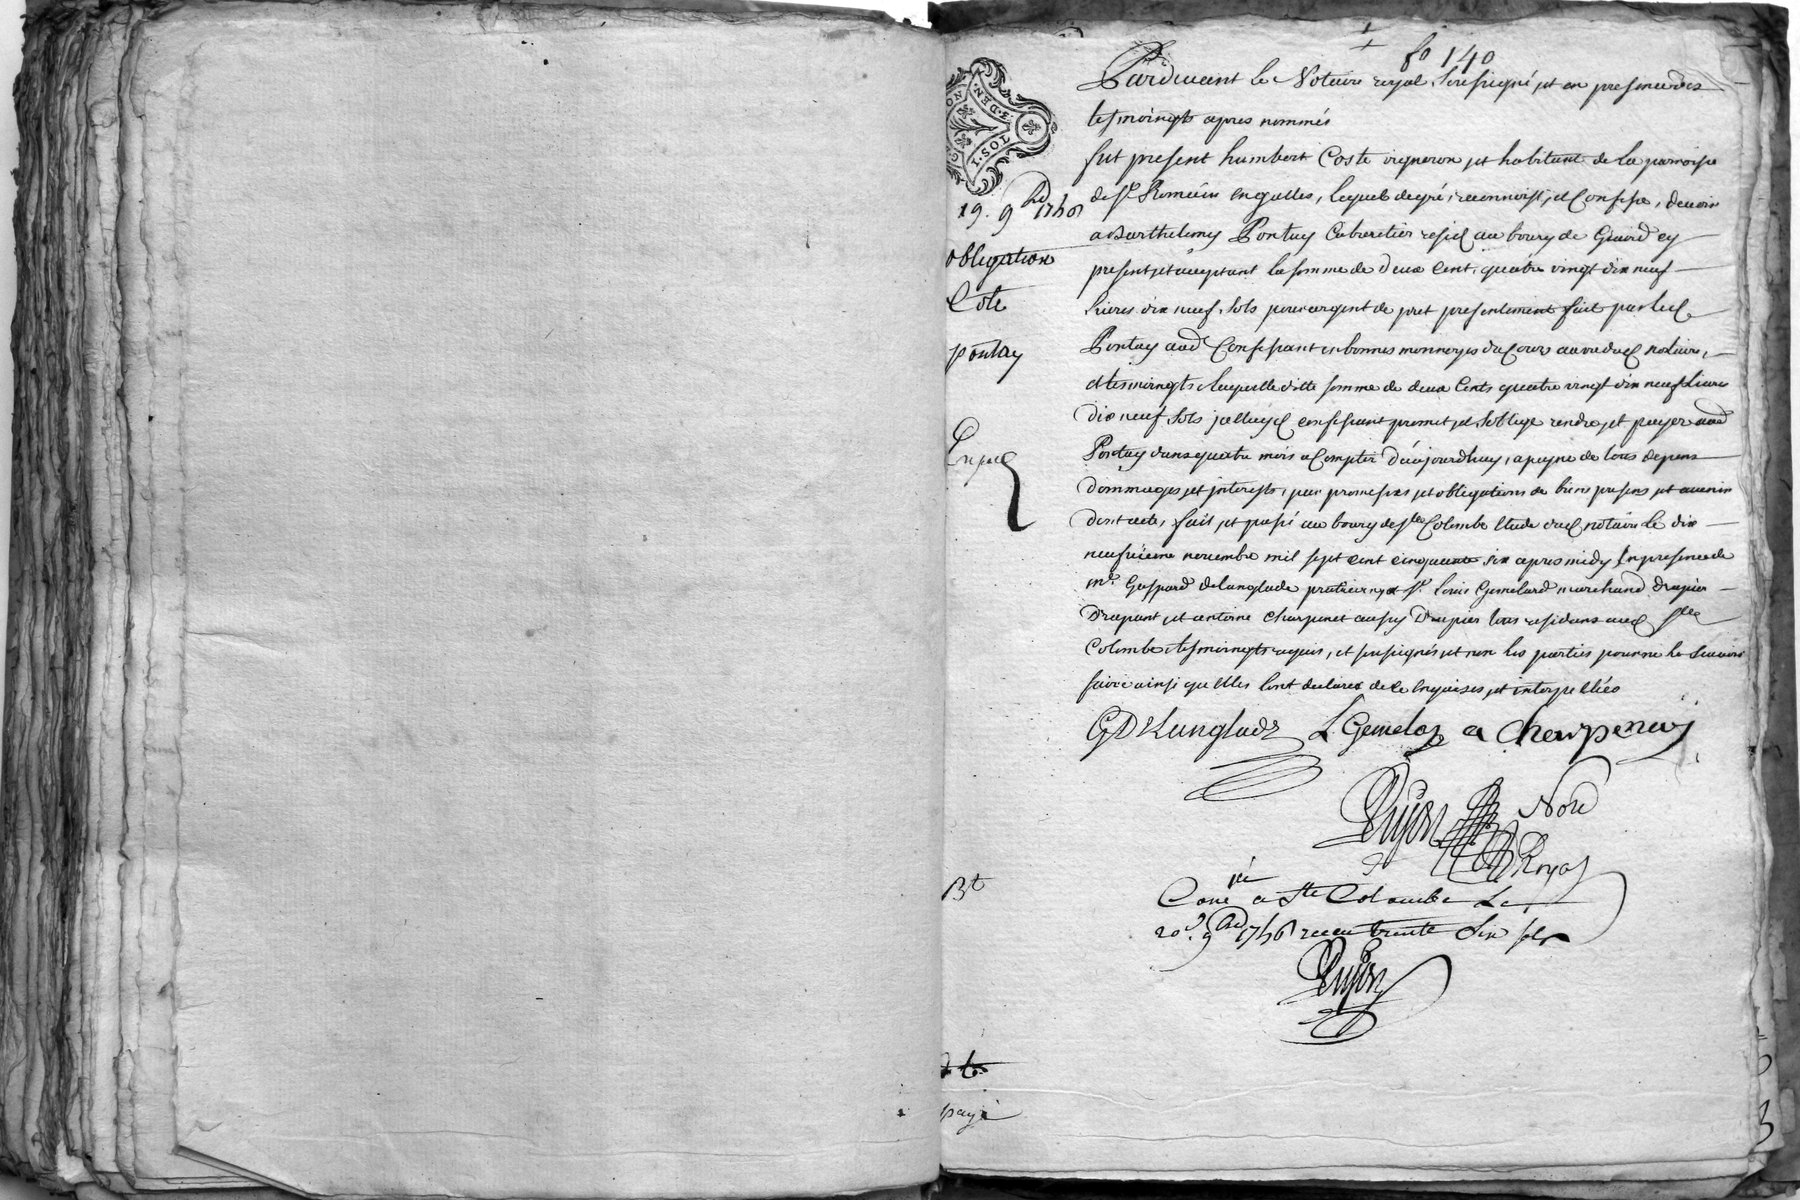 fo 140
Pardevant le Notaire royal Soussigné, et en presence des
tesmoingts apres nommés
fut present humbert Coste vigneron et habitant de la paroisse
de St Romain en galles, lequel de gré, reconnoist, et Confesse, devoir
a Barthelemy Pontuy Cabaretier resid au bourg de
present et aceptant la somme de deux Cent, quatre vingt dix neuf
Livres dix neuf sols pour argent de pret presentement fait par led
Pontuy aud Confessant en bonnes monnoyes du Cours au vu dud notaire,
et tesmoingts, laquelle ditte somme de deux Cents quatre vingt dix neuf Livres
dix neuf sols icelluy confessant promet et s'oblige rendre, et payer aud
Pontuy dans quatre mois a Compter d'aujourdhuy, a peyne de tous depens
dommages et jnterests, par promesses et obligations de biens presens et avenir
dont acte, fait et passé au bourg de ste Colombe Etude dud notaire Le dix
neufvieme novembre mil sept cent cinquante six apres midy En presence de
me. Gaspard delanglade praticien, et sr. Louis Gemelard marchand drapier
Drapant et antoine charpenet aussy Drapier tous residans aud ste
Colombe tesmoingts requis, et soussignés et non les parties pour ne le scavoir
faire ainsi qu'Elles l'ont declaré de ce Enquises et interpellées
GDelanglade L Gemelas a charpenay
Dujon Nore
Royal
Coné a Ste Colombe Le
20e. 9bre 1756 receu trente six sols
Dujon
3. DEN.
19. 9bre 1756
obligation
Coste
pontuy
Exped
Bt
payé